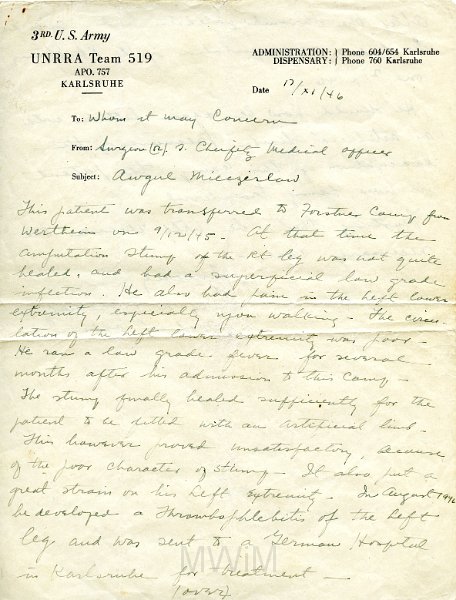 3RD. U. S. Army
UNRRA Team 519
APO. 757
KARLSRUHE
ADMINISTRATION: Phone 604/654 Karlsruhe
DISPENSARY: Phone 760 Karlsruhe
Date 17/XI/46
To: Whom it may Concern
From: Surgeon (Dr.) S. Cheifetz Medical Officer
Subject: Awgul Mieczerlaw
This patient was transferred to Forstner Camp from
Wertheim on 9/12/45. At that time the
amputation stump of the Rt leg was not quite
healed, and had a superficial low grade
infection. He also had pain in the left lower
extremity, especially upon walking. The circu-
lation of the left lower extremity was poor.
He ran a low grade fever for several
months after his admission to this Camp -
The stump finally healed sufficiently for the
patient to be fitted with an artificial limb.
This however proved unsatisfactory, because
of the poor character of stump - It also put a
great strain on his left extremity. In August 1946
he developed a Thrombophlebitis of the left
leg and was sent to a German Hospital
in Karlsruhe for treatment -
(over)
MWiM